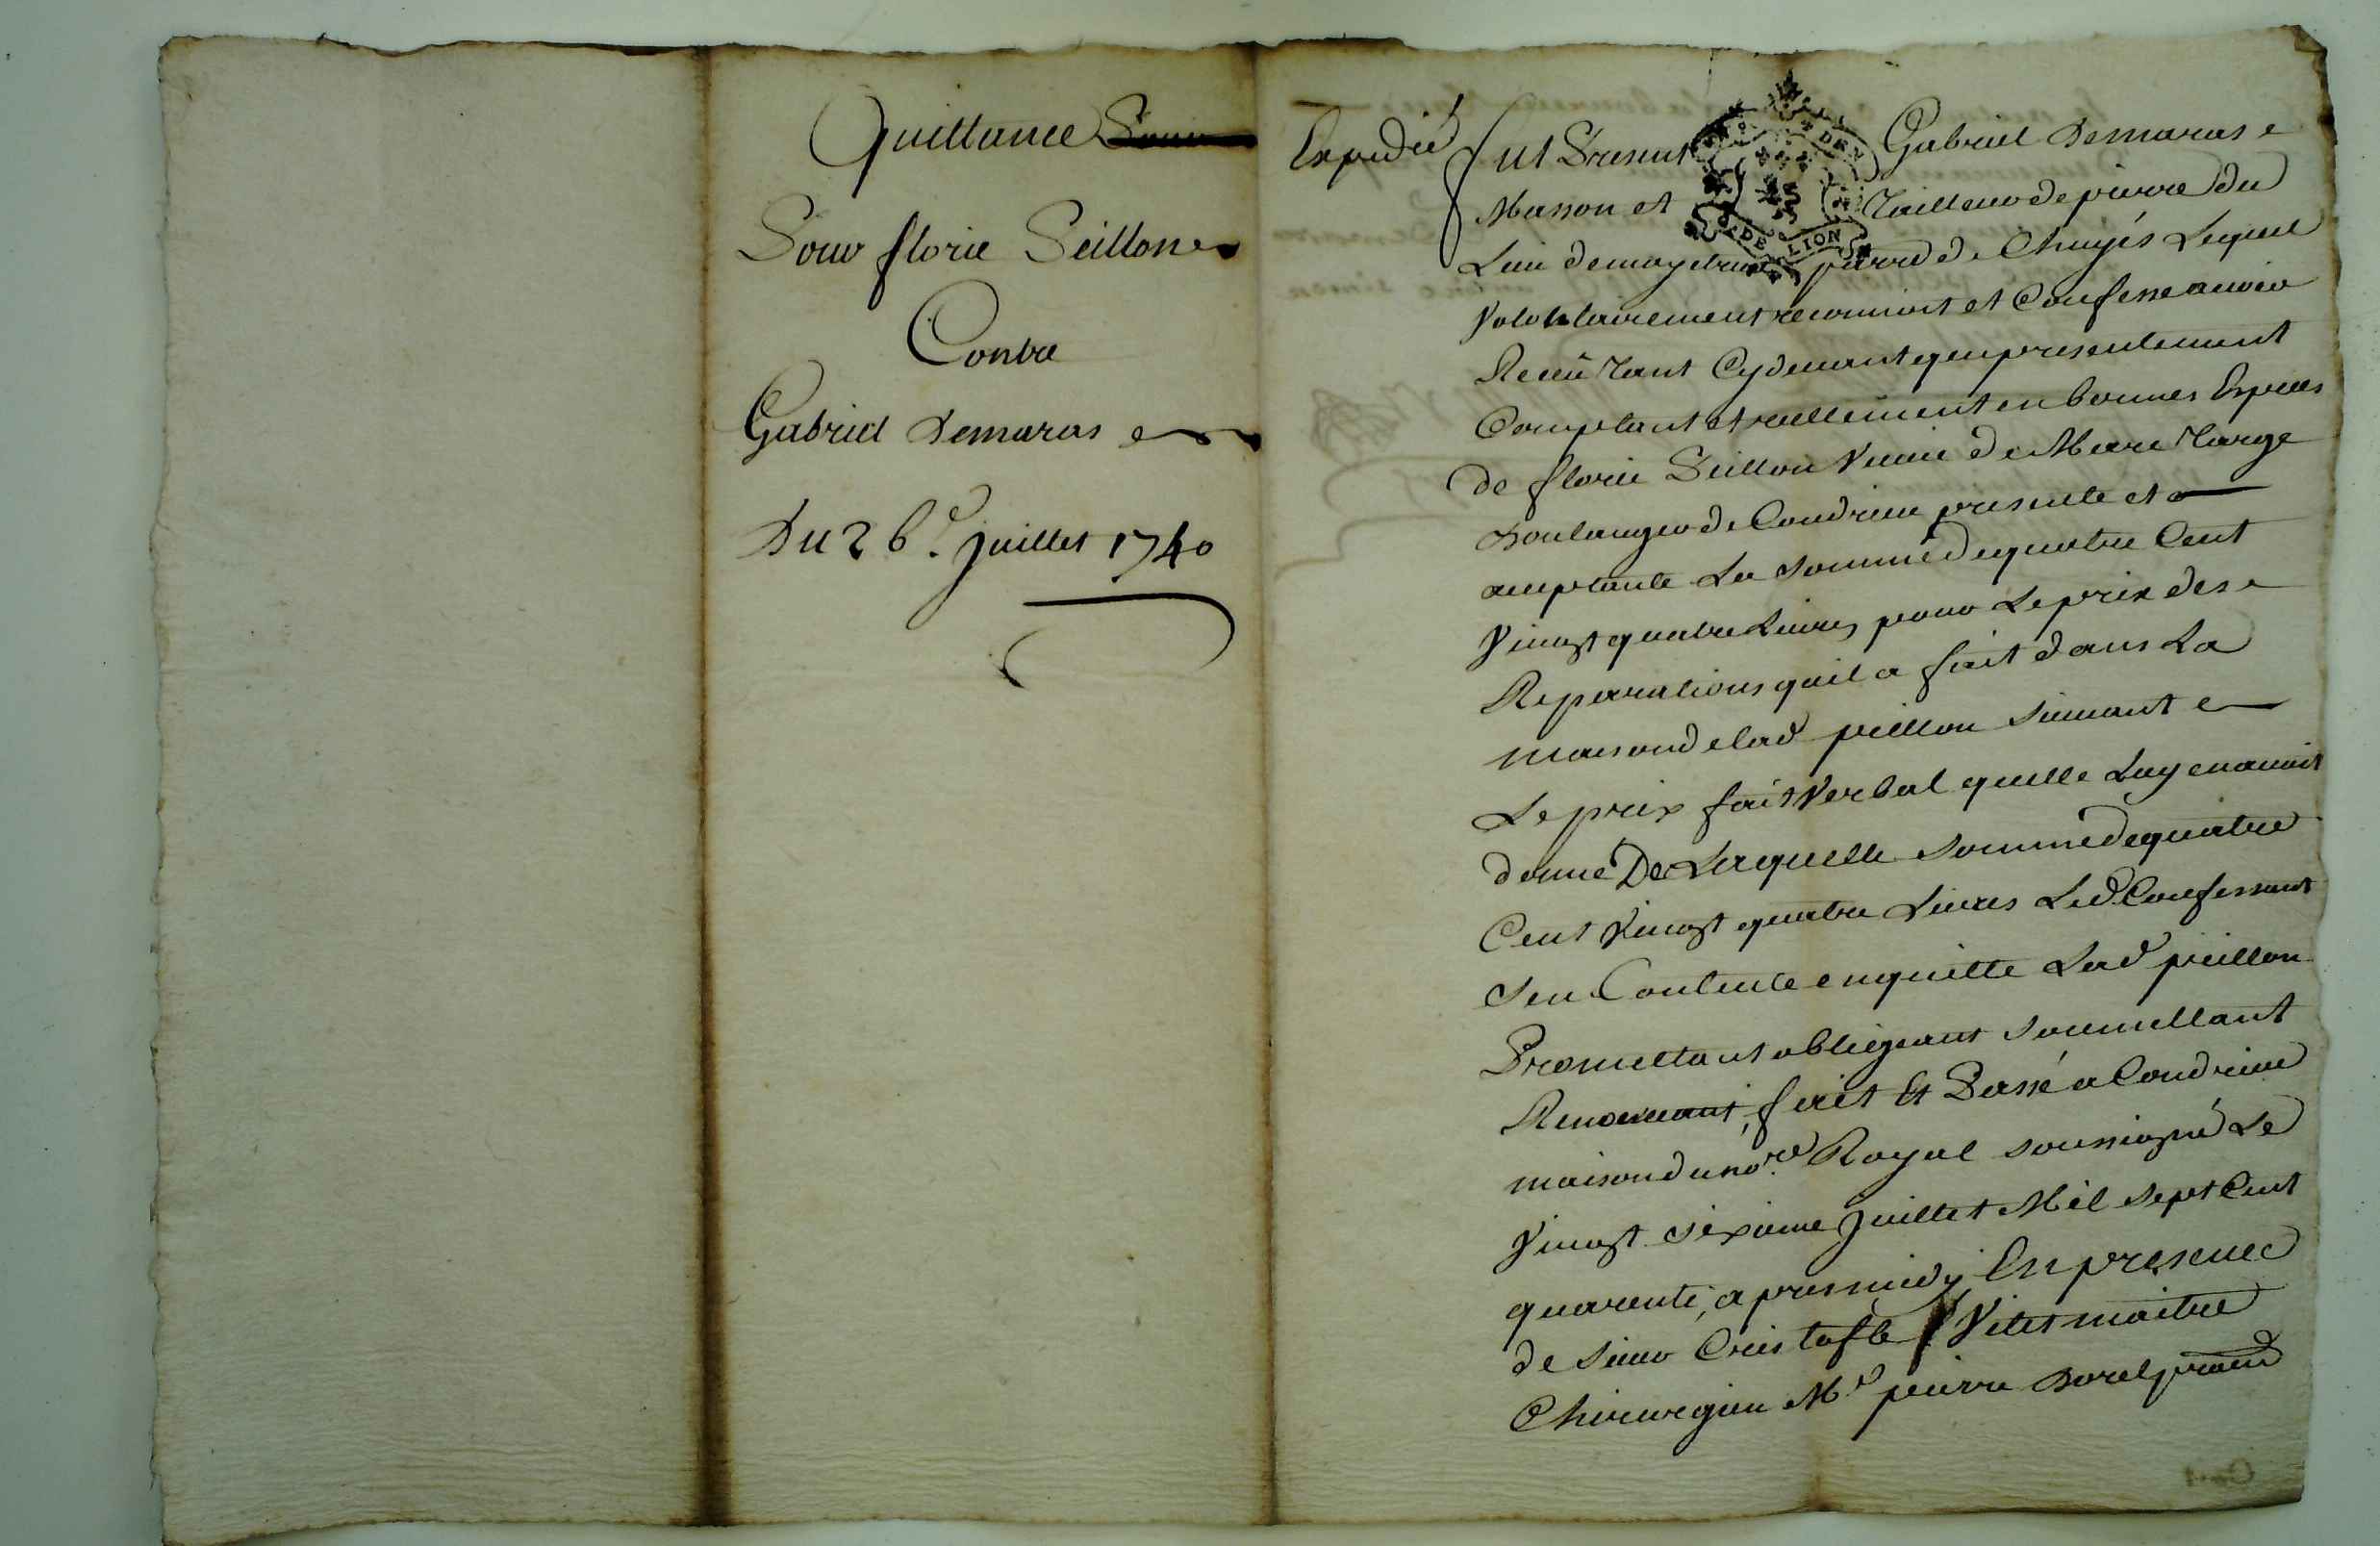 Quittance
Pour florie Peillon
Contre
Gabriel Demaras
Du 26e. juillet 1740
Expedié
fut Present Gabriel Demaras
Masson et Tailleur de pierre du
Lieu de parre de Chuyés Lequel
Volontairement reconnoit et Confesse avoir
Receu tant Cydevant qu'en presentement
Comptant et reellement en bonnes Especes
de florie Peillon Veuve de Marc Targe
Boulanger de Condrieu presente et
aceptante La somme de quatre Cent
Vingt quatre Livres pour Le prix des
Reparations quil a fait dans La
maison de lad peillon suivant
Le prix fait Verbal quelle Luy en avoit
donné De Laquelle somme de quatre
Cent Vingt quatre Livres Led Confessant
sen Contente en quitte Lad peillon
Promettant obligeant soumettant
Renonceant, fait Et Passé a Condrieu
maison du nore. Royal soussigné Le
Vingt sixieme Juillet Mil sept Cent
quarente, apres midy, En presence
de sieur Cristofle Vitet maitre
Chirurgien Me pierre Borel
DE LION